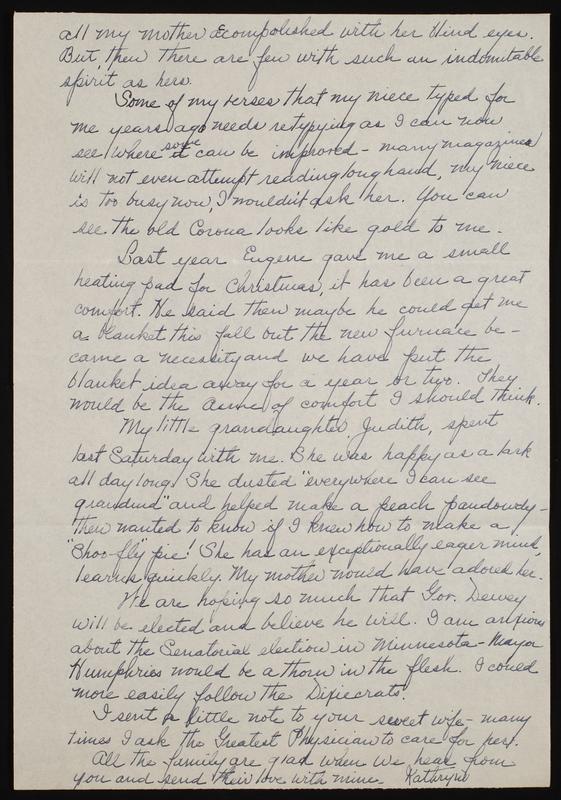 all my mother acomplished with her blind eyes.
But, then there are few with such an indomitable
spirit as hers.
Some of my verses that my niece typed for
me years ago needs retypying as I can now
see where some
it can be improved - many magazines
will not even attempt reading longhand, my niece
is too busy now, I wouldn't ask her. You can
see the old Corona looks like gold to me.
Last year Eugene gave me a small
heating pad for Christmas, it has been a great
comfort. He said then maybe he could get me
a blanket this fall but the new furnace be-
came a necessity and we have put the
blanket idea away for a year or two. They
would be the acme of comfort I should think.
My little grandaughter, Judith, spent
last Saturday with me. She was happy as a lark
all day long. She dusted "everywhere I can see
grandma" and helped make a peach pandowdy-
then wanted to know if I knew how to make a
"Shoo-fly" pie! She has an exceptionally eager mind,
learns quickly. My mother would have adored her.
We are hoping so much that Gov. Dewey
will be elected and believe he will. I am anxious
about the Senatorial election in Minnesota - Mayor
Humphries would be a thorn in the flesh. I could
more easily follow the Dixiecrats.
I sent a little note to your sweet wife - many
times I ask the Greatest Physician to care for her.
All the family are glad when we hear from
you and send their love with mine. Kathryn